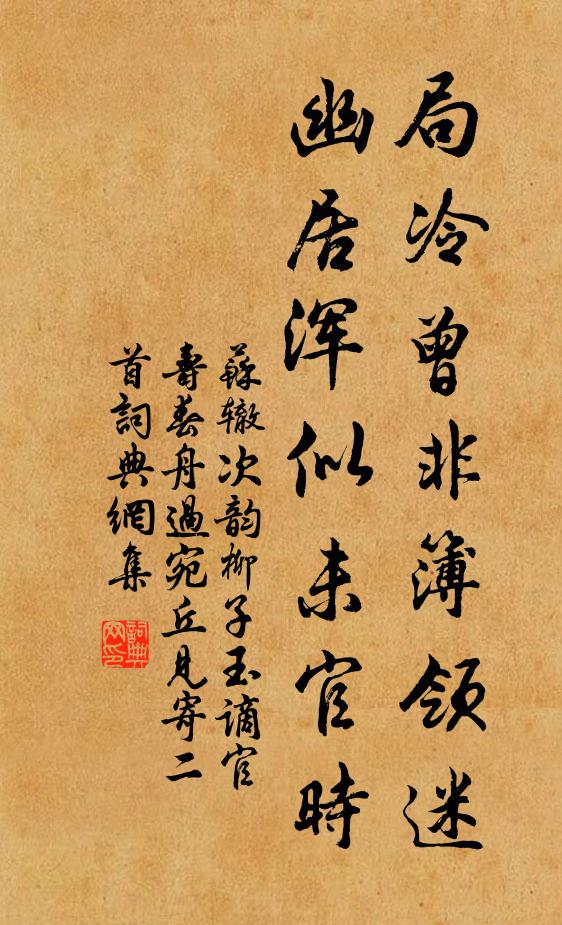 局冷曾非簿領迷
幽居浑似未官時
蘇辙次韵柳子玉谪官
壽春舟過宛丘見寄二
首詞典網集
詞典網印